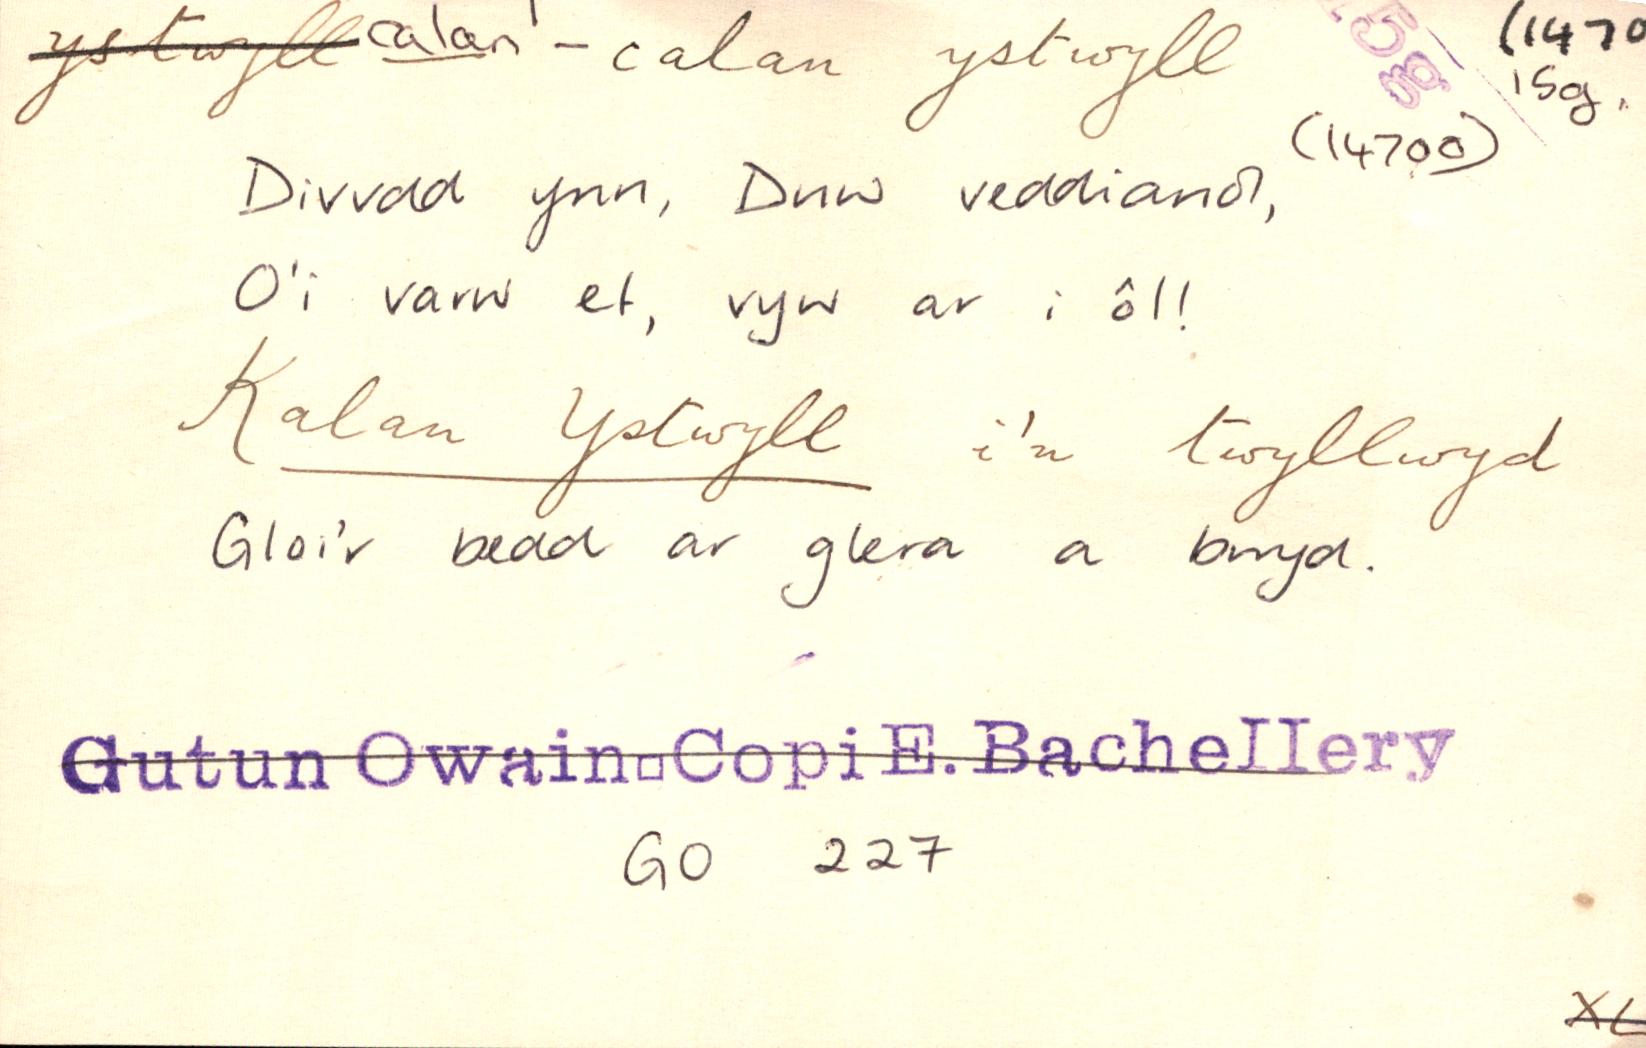 ystwyll calan¹ - calan ystwyll
15g
(1470
15g.
(1470o)
Divvdd ynn, Duw veddianol,
O'i varw ef, vyw ar i ôl!
Kalan Ystwyll i'n twyllwyd
Gloi'r bedd ar glera a bwyd.
Gutun Owain. Copi E. Bachellery
GO 227
XL